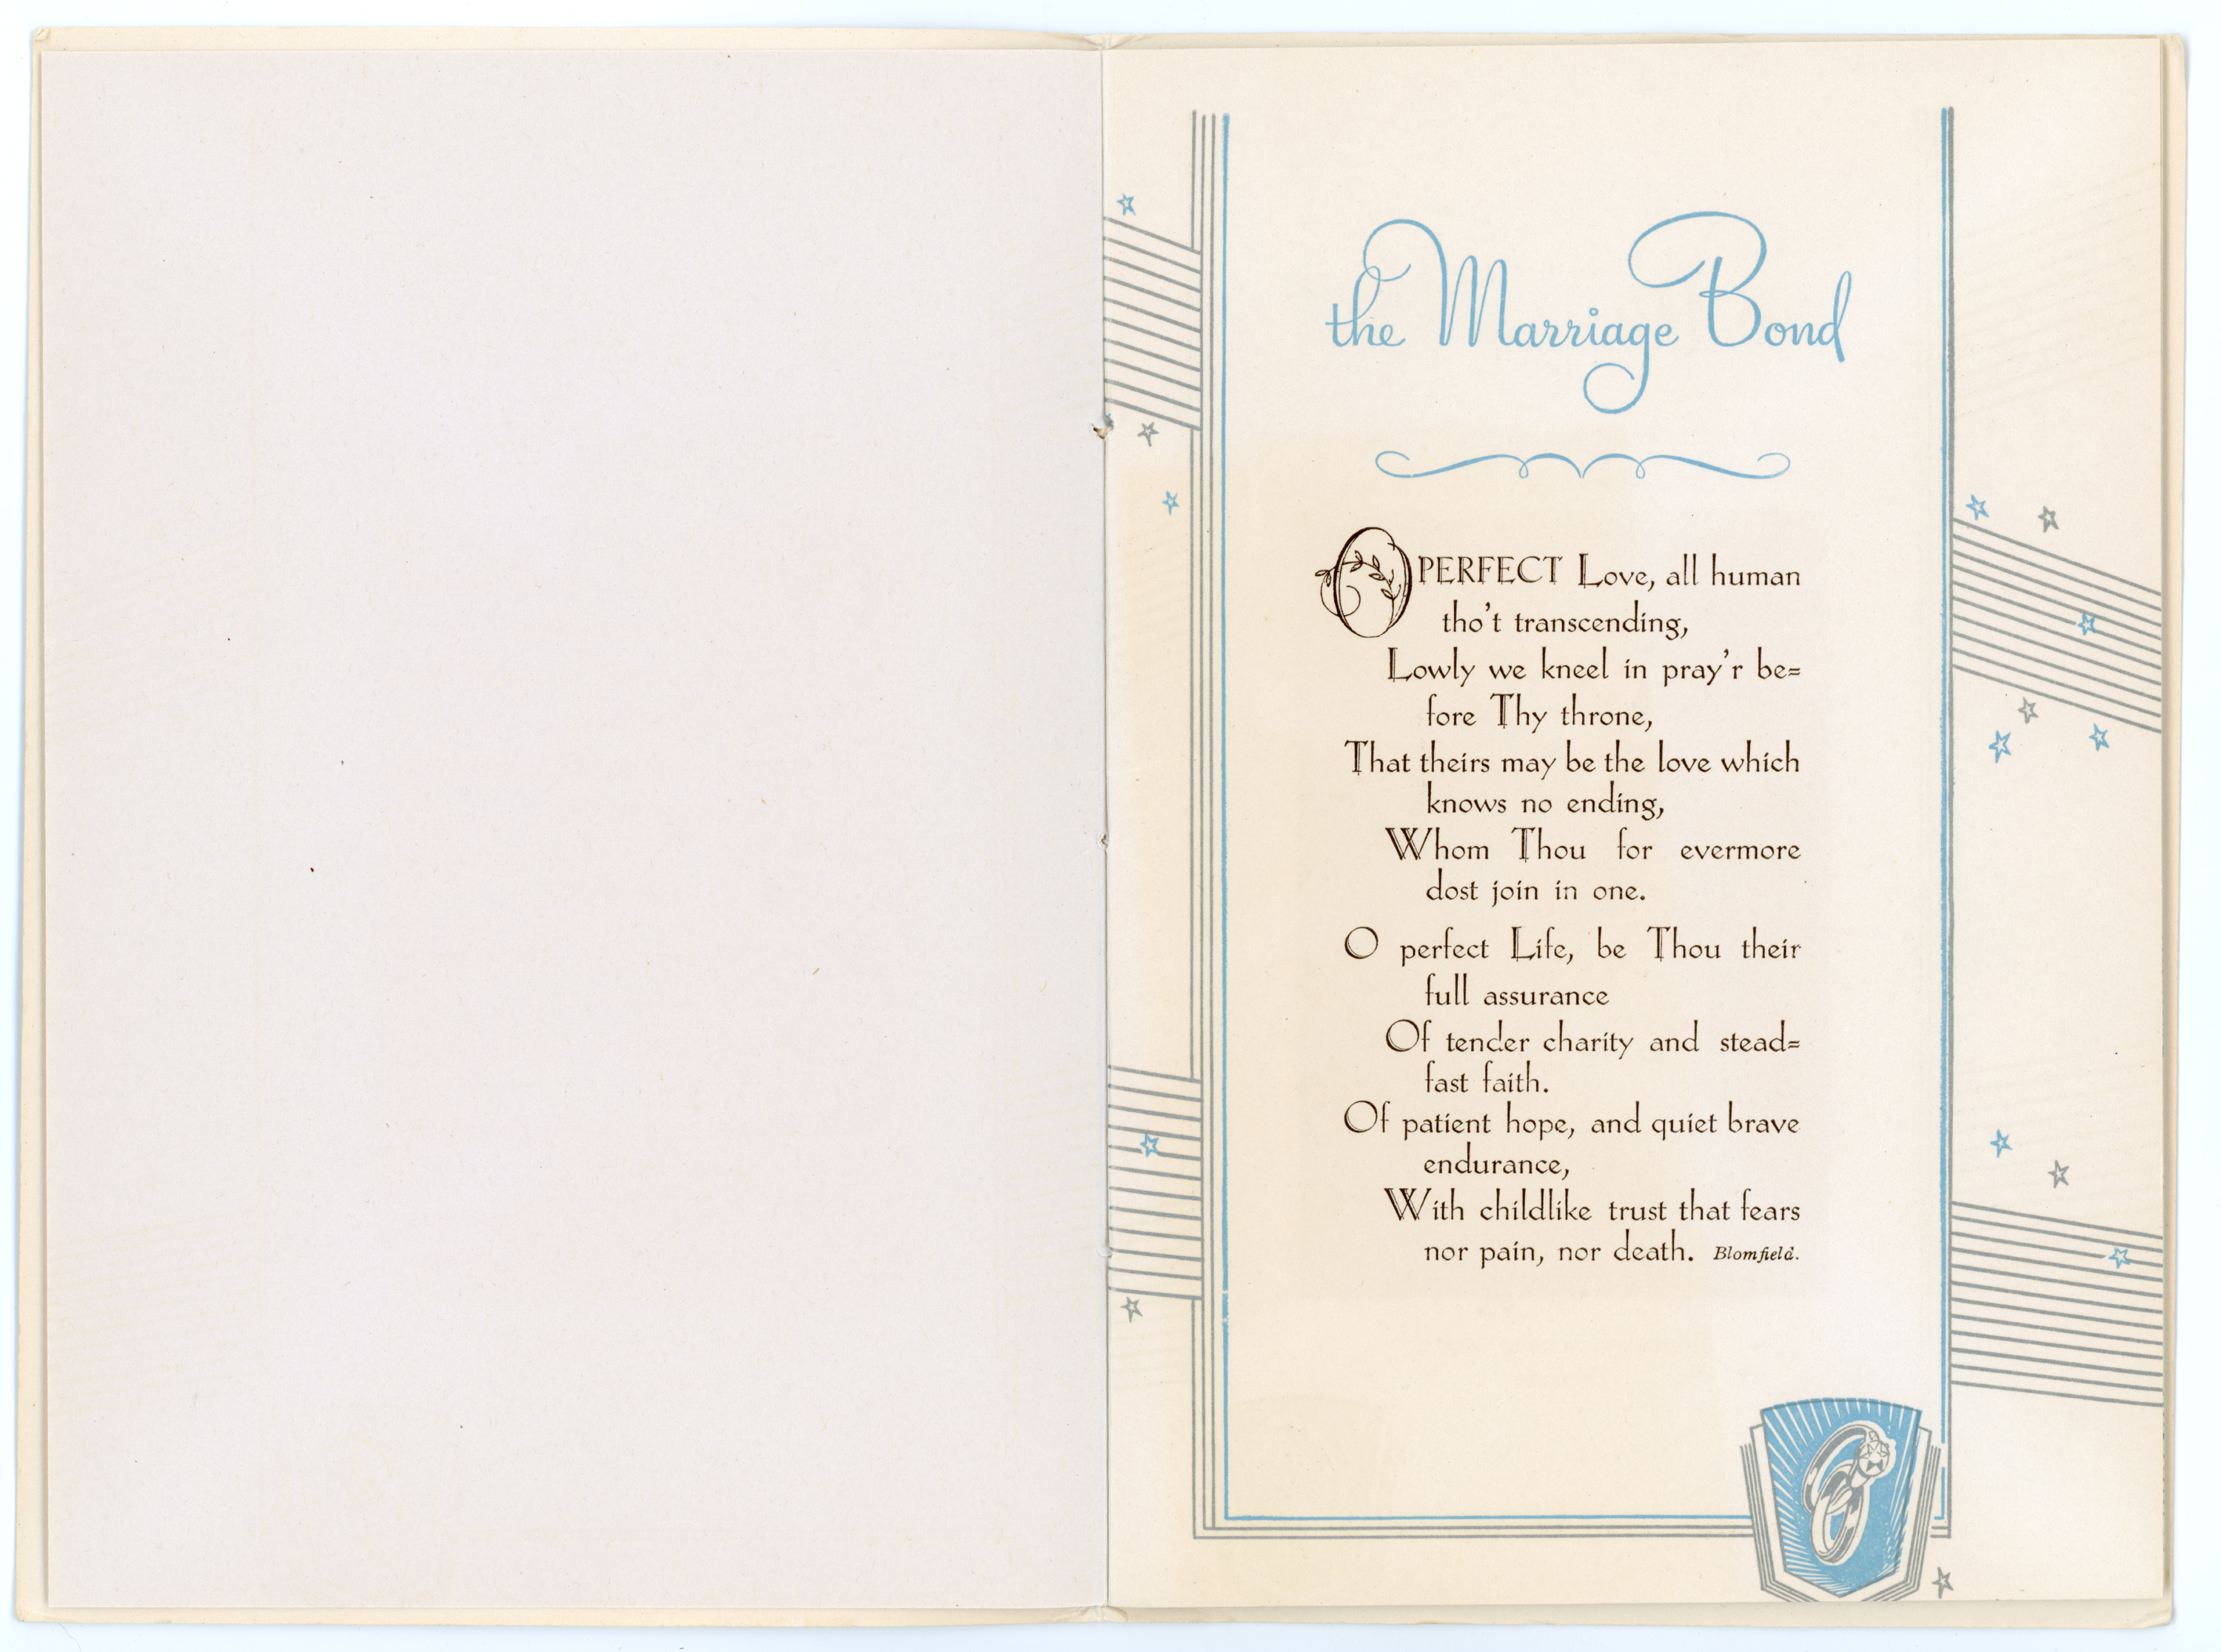 the Marriage Bond
O PERFECT Love, all human
tho't transcending,
Lowly we kneel in pray'r be=
fore Thy throne,
That theirs may be the love which
knows no ending,
Whom Thou for evermore
dost join in one.
O perfect Life, be Thou their
full assurance
Of tender charity and stead=
fast faith.
Of patient hope, and quiet brave
endurance,
With childlike trust that fears
nor pain, nor death. Blomfield.